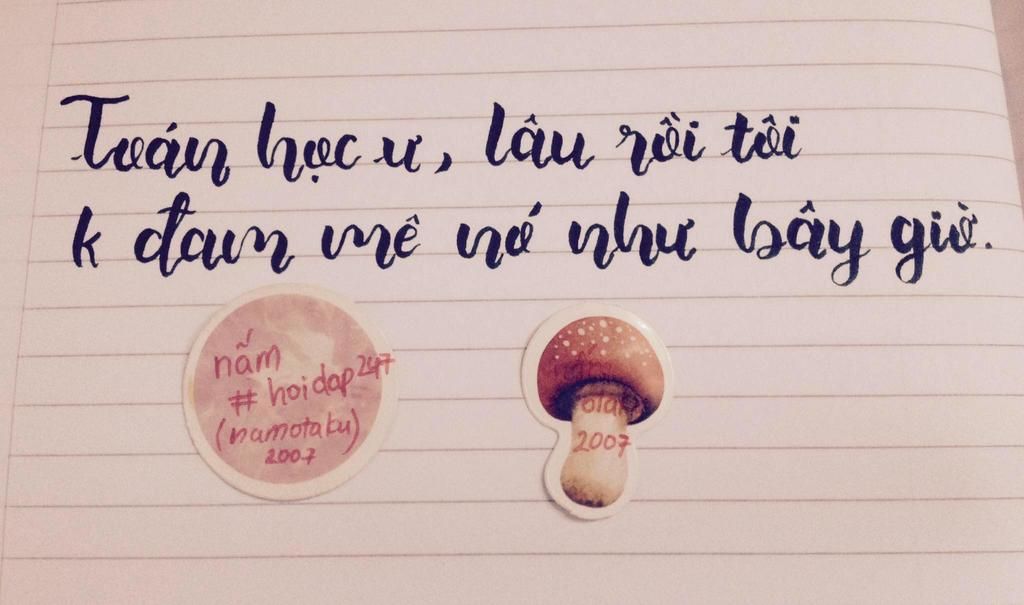 Toán học ư, lâu rồi tôi
k đam mê nó như bây giờ.
nấm
#hoidap247
(namotaku)
2007
2007